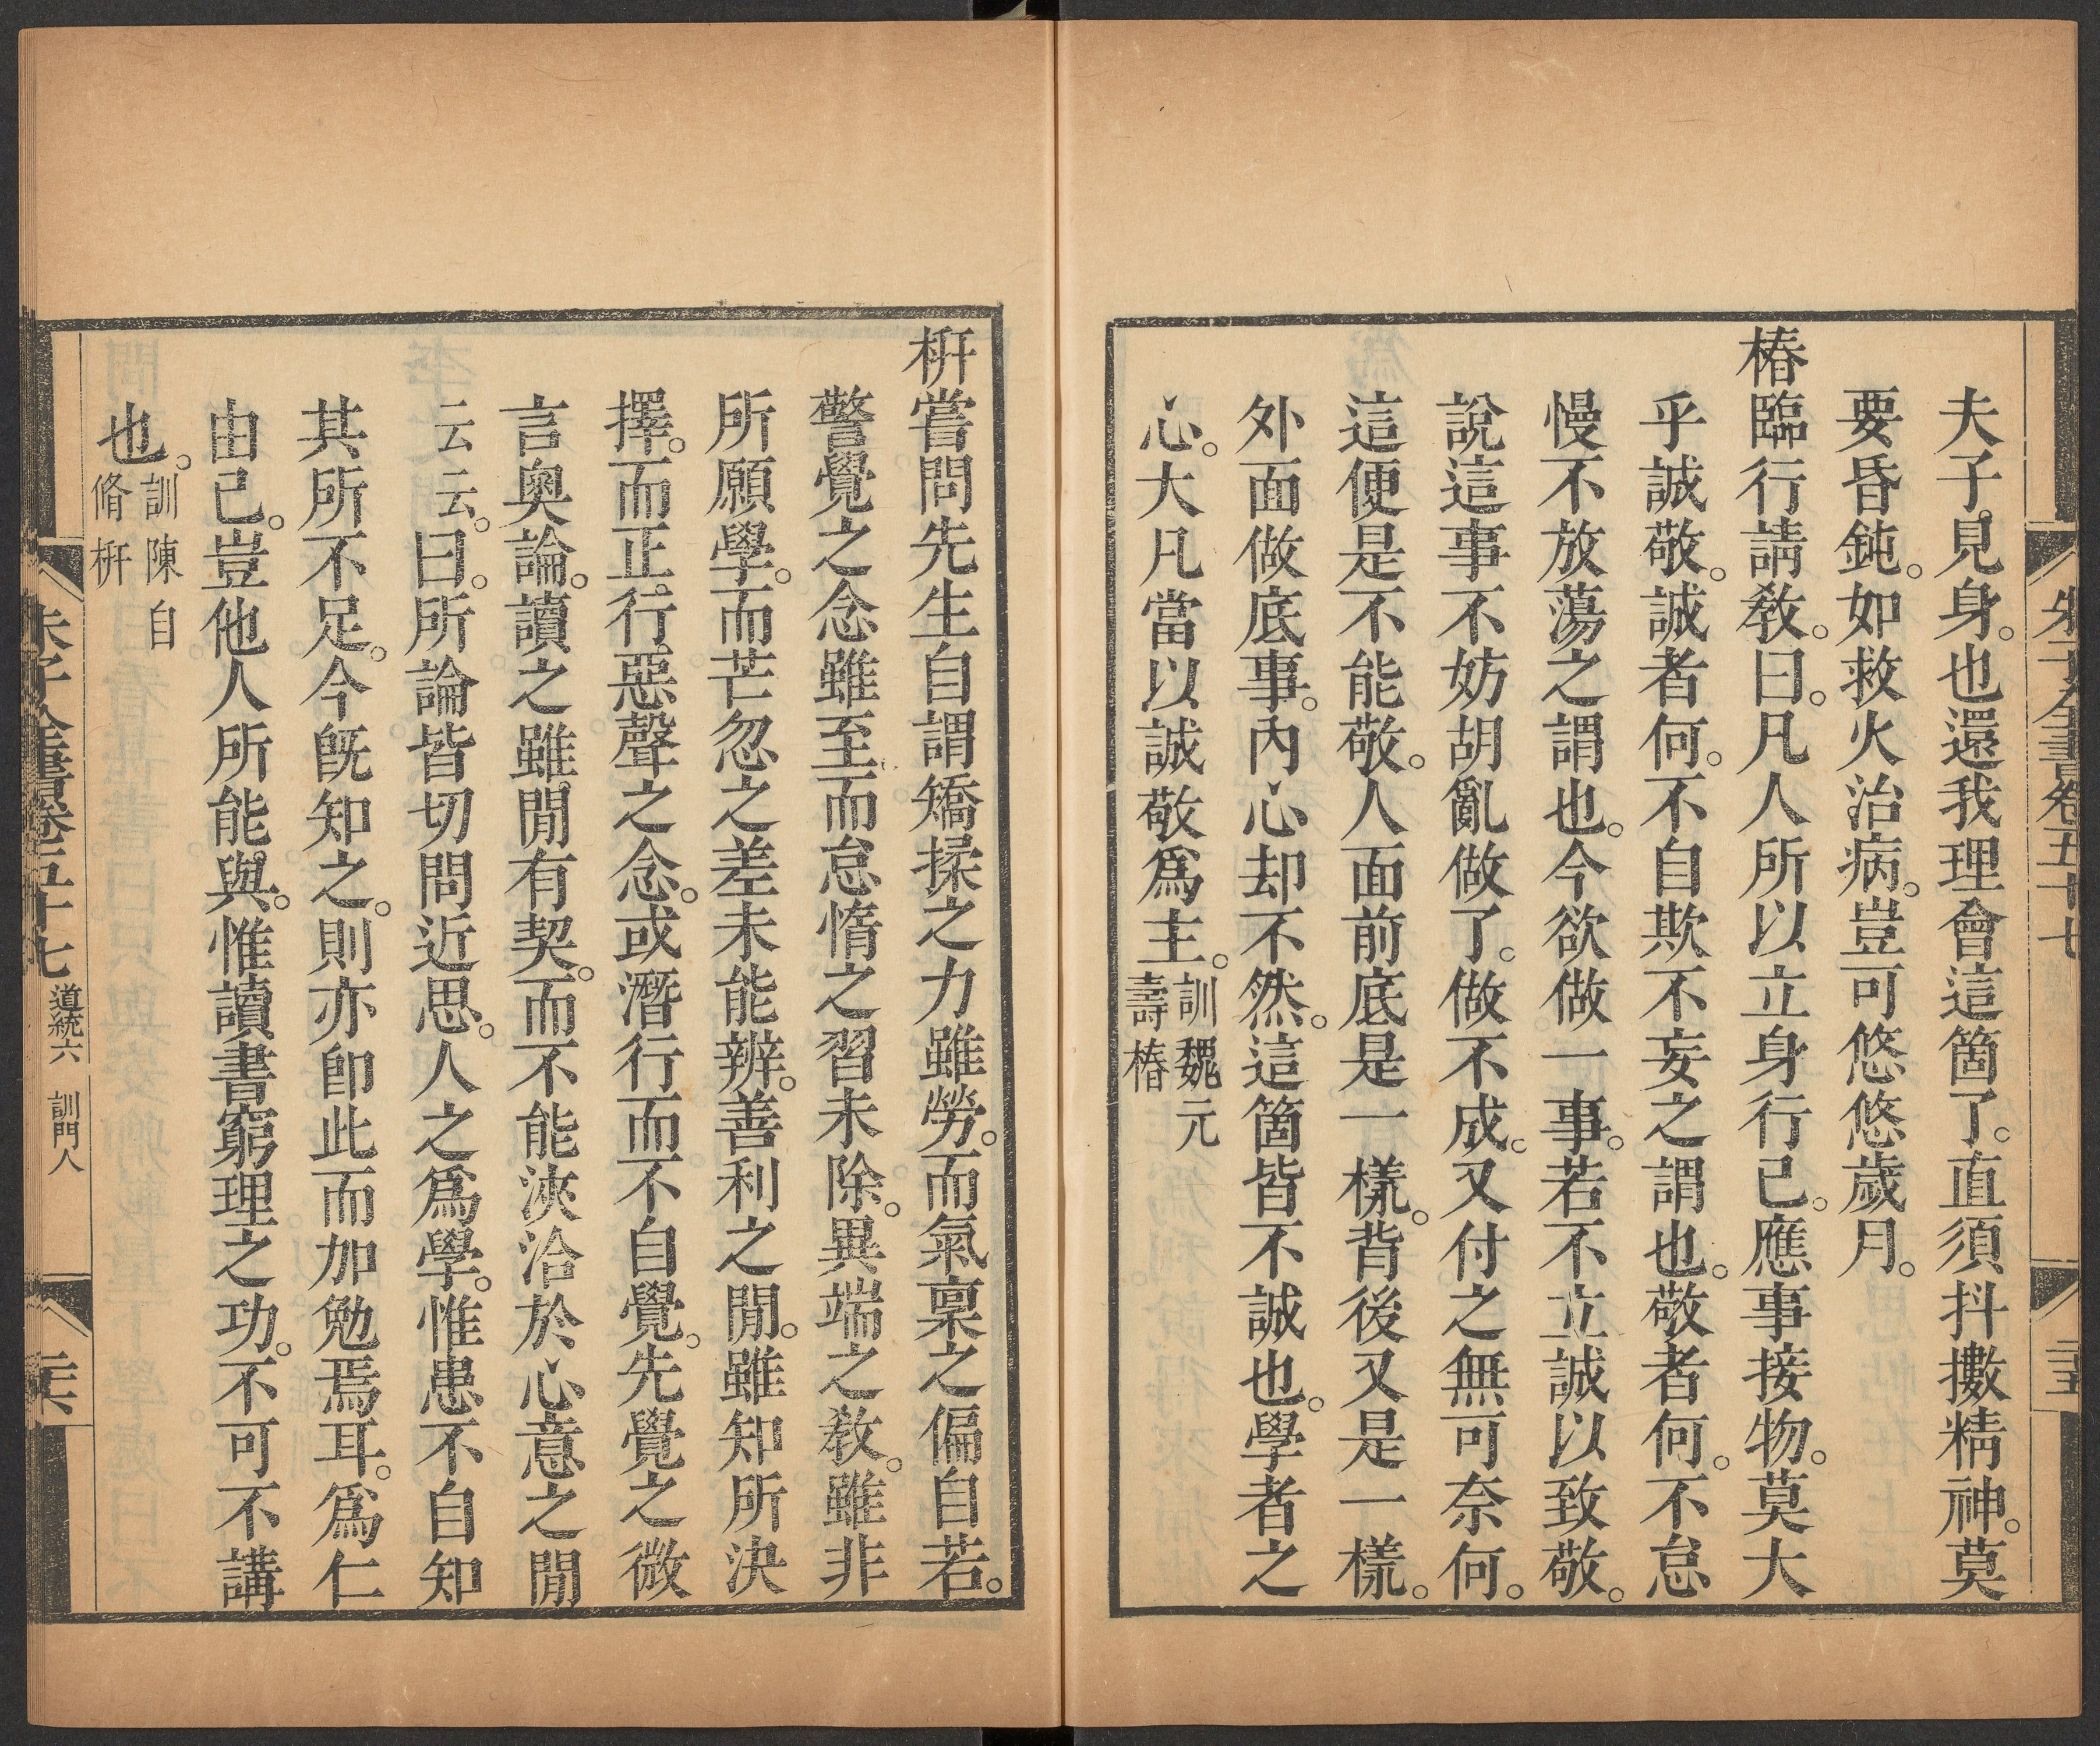 夫子。見身。也還我理會這箇了。直須抖擻精神。莫
要昏鈍。如救火治病。豈可悠悠歲月。
椿臨行請教。曰。凡人所以立身行己。應事接物。莫大
乎誠敬。誠者何。不自欺不妄之謂也。敬者何。不怠
慢不放蕩之謂也。今欲做一事。若不立誠以致敬。
說這事不妨胡亂做了。做不成。又付之無可奈何。
這便是不能敬。人面前底是一樣。背後又是一樣。
外面做底事。內心却不然。這箇皆不誠也。學者之
心。大凡當以誠敬爲主。訓魏元
壽椿
枅嘗問先生自謂矯揉之力雖勞。而氣稟之偏自若。
警覺之念雖至。而怠惰之習未除。異端之教。雖非
所願學。而芒忽之差未能辨。善利之閒。雖知所決
擇。而正。行惡聲之念。或潛行而不自覺。先覺之微
言奧論。讀之雖閒有契。而不能浹洽於心意之閒
云云。曰。所論皆切問近思。人之爲學。惟患不自知
其所不足。今旣知之。則亦卽此而加勉焉耳。爲仁
由己。豈他人所能與。惟讀書窮理之功。不可不講
也。訓陳自
脩枅
朱子全書卷五十七 道統六 訓門人 二六